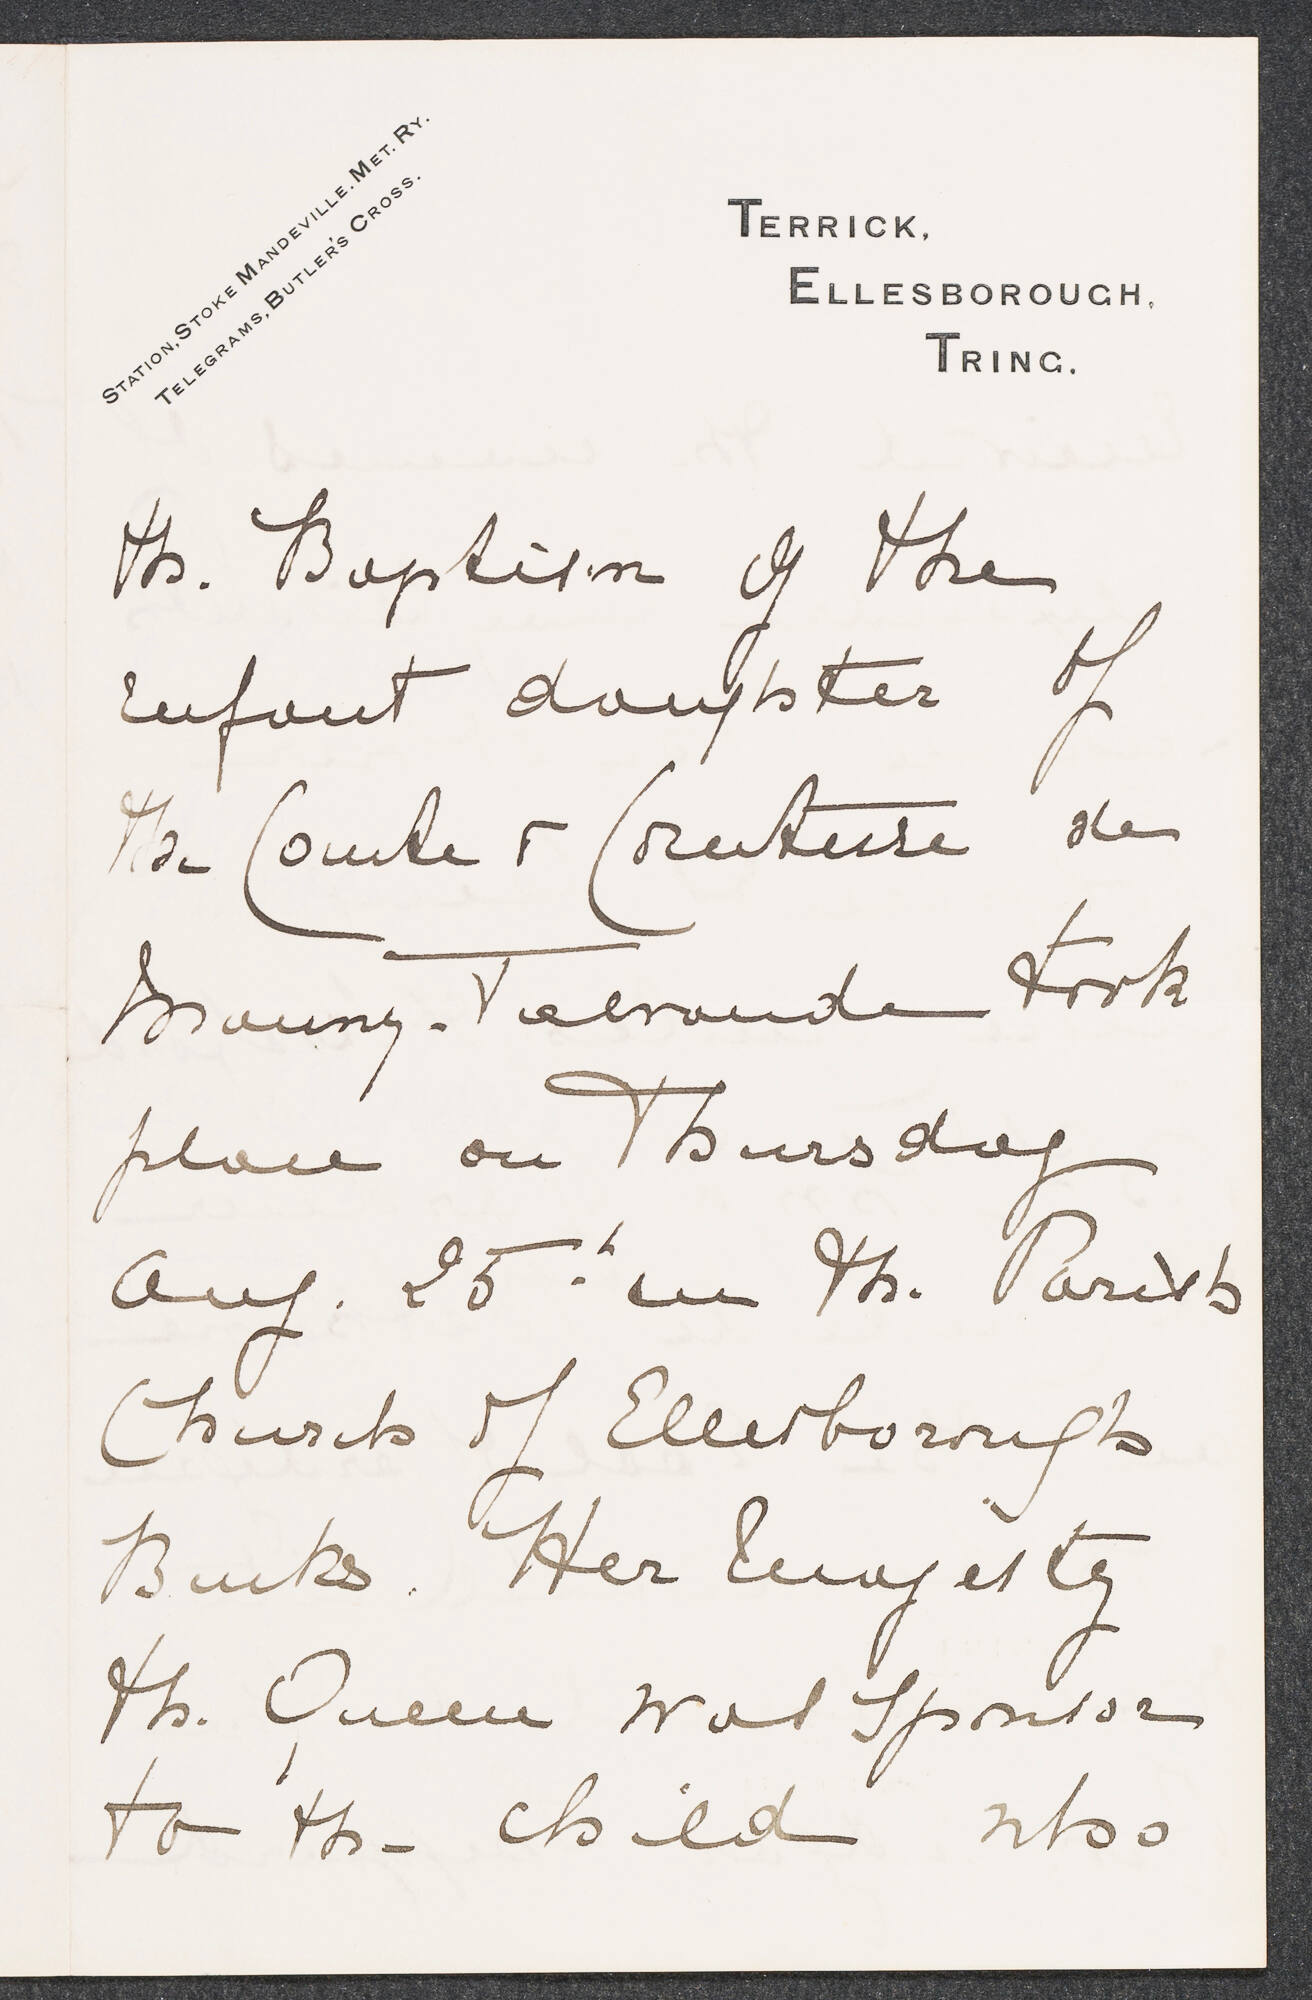 STATION, STOKE MANDEVILLE. MET. RY.
TELEGRAMS, BUTLER'S CROSS.
TERRICK,
ELLESBOROUGH,
TRING.
The Baptism of the
infant daughter of
the Comte & Comtesse de
Mauny-Talvande took
place on Thursday
Aug. 25th in the Parish
Church of Ellesborough
Bucks. Her Majesty
the Queen was Sponsor
to the child who